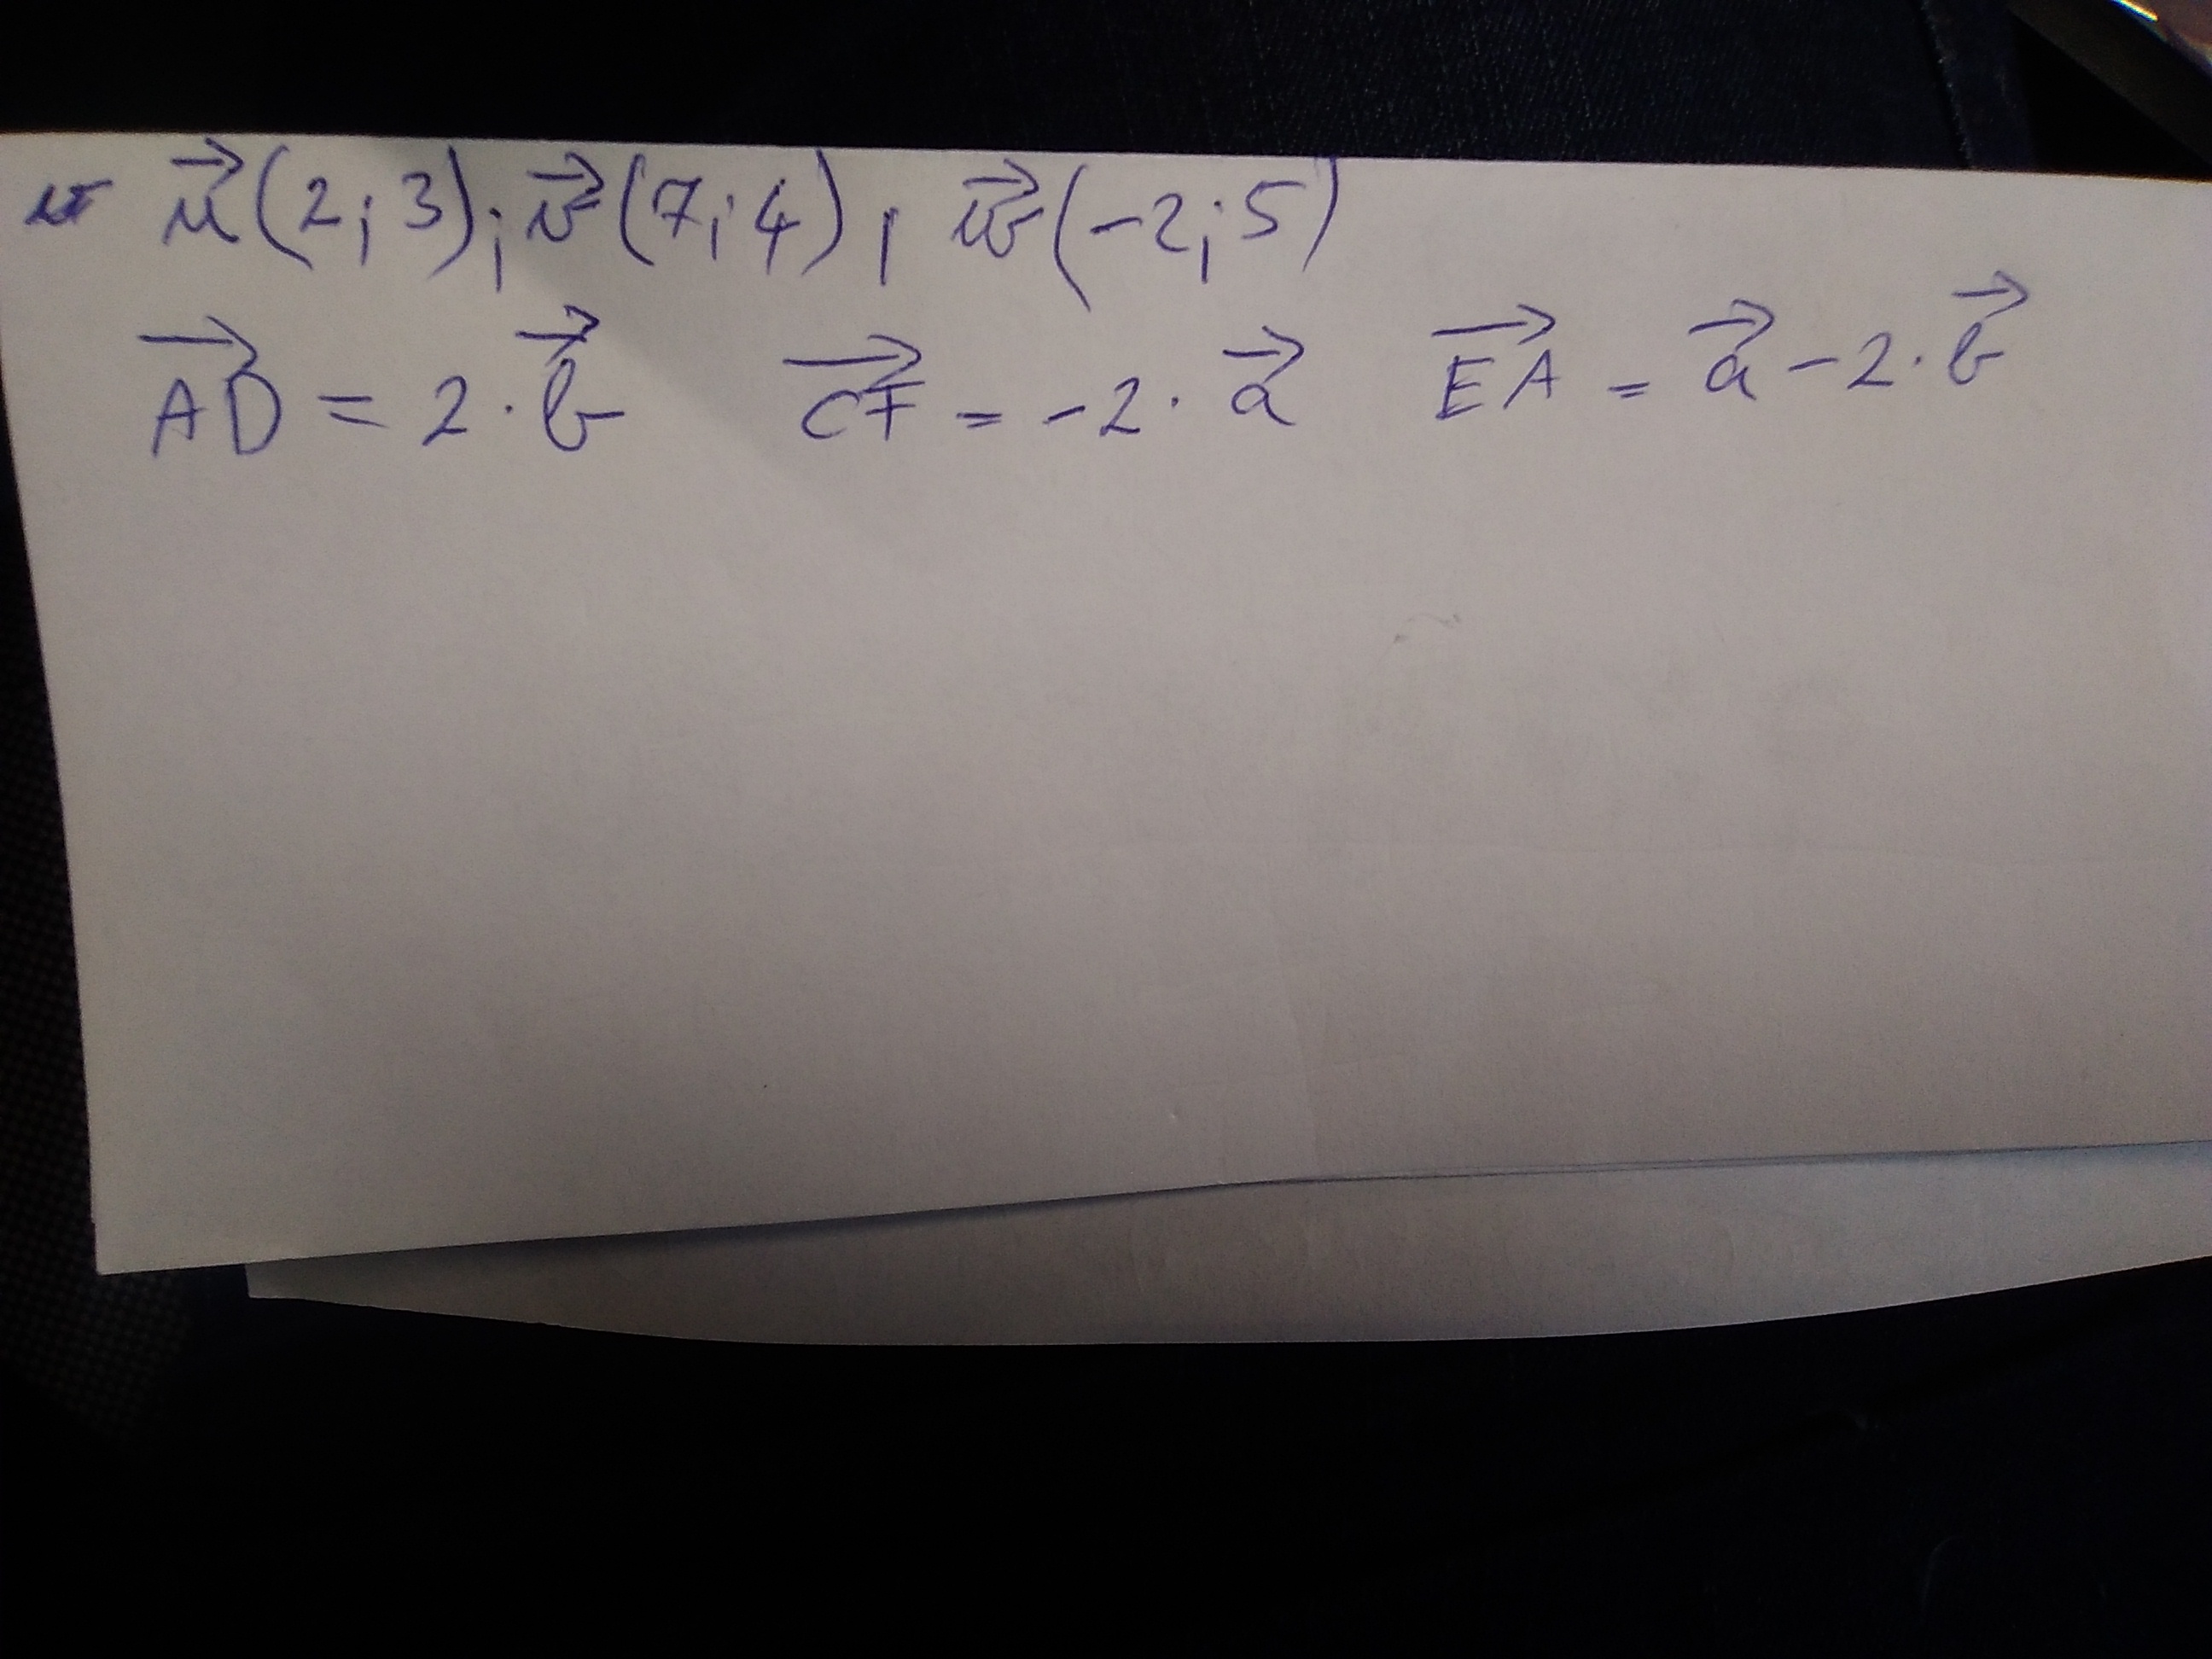 u⃗(2;3); v⃗(7;4), w⃗(-2;5)
AD⃗ = 2·b⃗ CF⃗ = -2·a⃗ EA⃗ = a⃗ - 2·b⃗